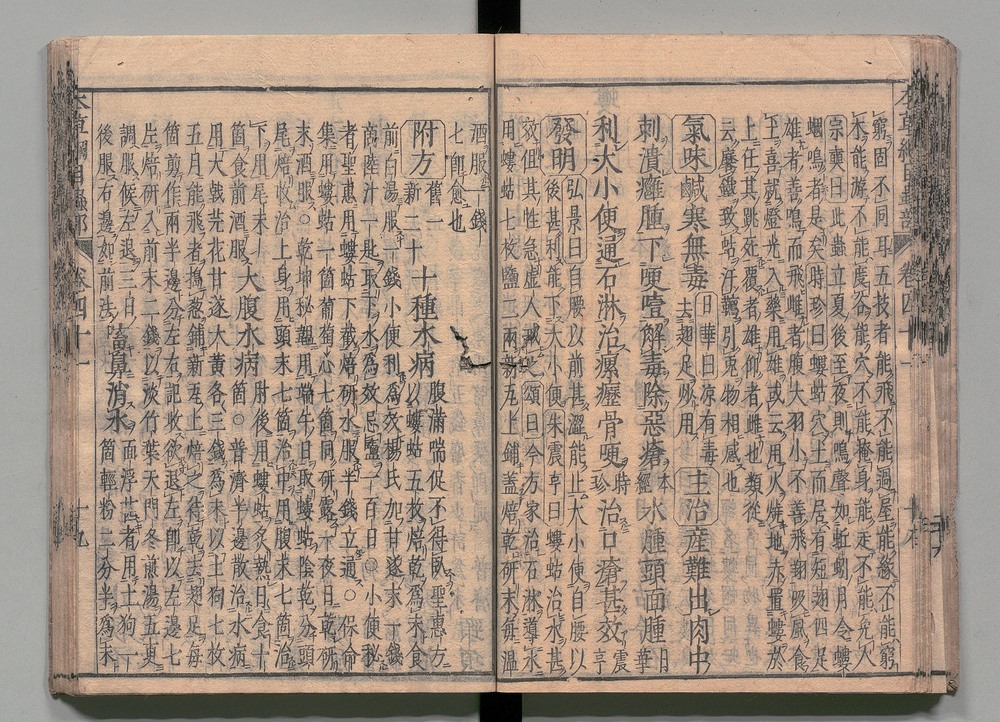 窮固不同耳五技者能飛不能過屋能緣不能窮
木能游不能度谷能穴不能掩身能走不能免人
宗奭曰此蟲立夏後至夜則鳴聲如蚯蚓月令螻
蟈鳴者是矣時珍曰螻蛄穴土而居有短翅四足
雄者善鳴而飛雌者腹大羽小不善飛翔吸風食
土喜就燈光入藥用雄或云用火燒地赤置螻於
上任其跳死覆者雄仰者雌也類從
云磨鐵致蛄汗韉引兎物相感也
氣味鹹寒無毒日華曰凉有毒去翅足炒用主治產難出肉中
刺潰癰腫下哽噎解毒除惡瘡本經水腫頭面腫日華
利大小便通石淋治瘰癧骨哽時珍治口瘡甚效震亨
發明弘景曰自腰以前甚澀能止大小便自腰以
後甚利能下大小便朱震亨曰螻蛄治水甚
效但其性急虛人戒之頌曰今方家治石淋導水
用螻蛄七枚鹽二兩新瓦上鋪蓋焙乾研末每溫
酒服一錢
七卽愈也
附方舊一新二十十種水病腹滿喘促不得臥聖惠方以螻蛄五枚焙乾爲末食
前白湯服一錢小便利爲效楊氏加甘遂末一錢
商陸汁一匙取下水爲效忌鹽一百日○小便秘
者聖惠用螻蛄下截焙研水服半錢立通○保命
集用螻蛄一箇葡萄心七箇同研露一夜日乾研
末酒服○乾坤秘韞用端午日取螻蛄陰乾分頭
尾焙收治上身用頭末七箇治中用腹末七箇治
下用尾末七
箇食前酒服大腹水病肘後用螻蛄炙熟日食十箇○普濟半邊散治水病
用大戟芫花甘遂大黃各三錢爲末以土狗七枚
五月能飛者搗葱鋪新瓦上焙之待乾去翅足每
箇剪作兩半邊分左右記收欲退左卽以左邊七
片焙研入前末二錢以淡竹葉天門冬煎湯五更
調服候左退三日
後服右邊如前法㗜鼻消水面浮甚者用土狗一箇輕粉二分半爲末
本草綱目蟲部 卷四十一 十九